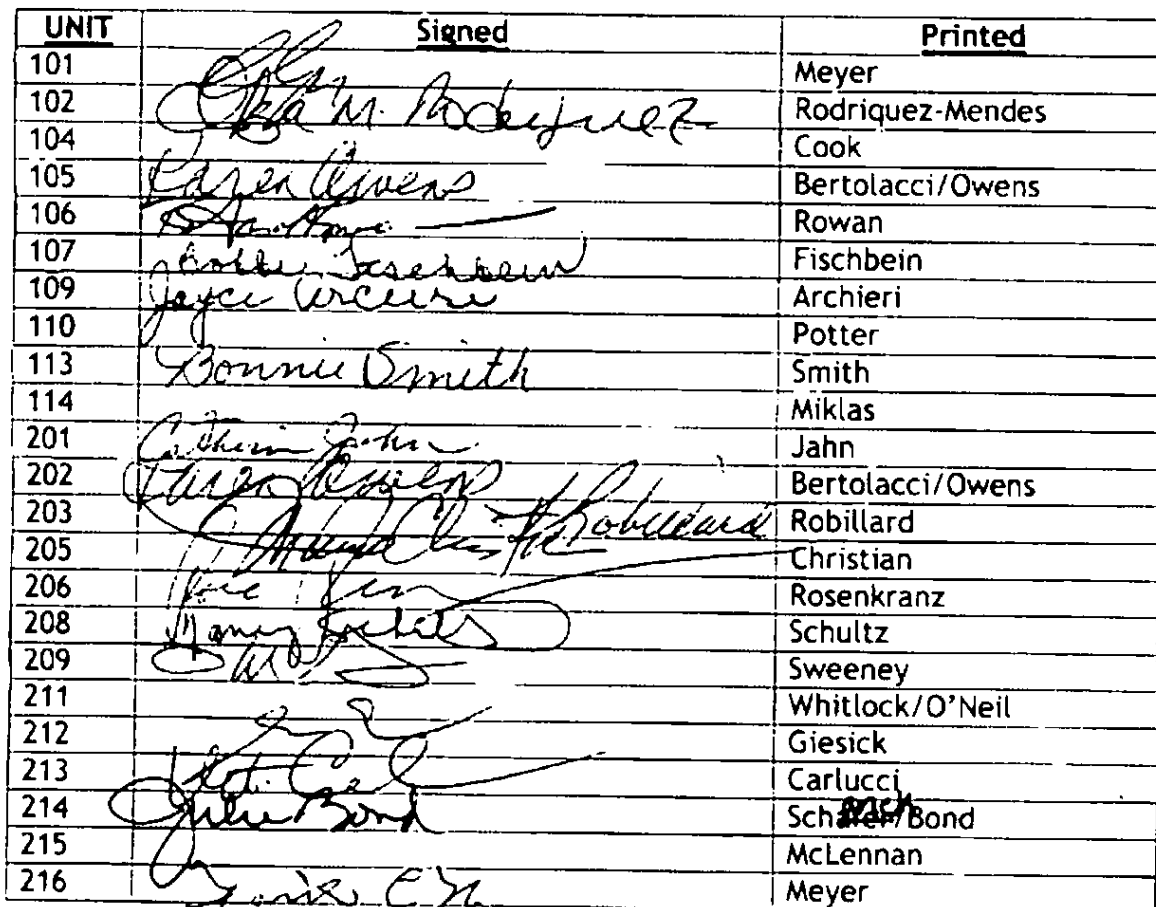 UNIT Signed Printed
101 Meyer
102 Olga M. Rodriguez Rodriquez-Mendes
104 Cook
105 Karen Owens Bertolacci/Owens
106 Rowan
107 Bobbie Fischbein Fischbein
109 Joyce Arcieri Archieri
110 Potter
113 Bonnie Smith Smith
114 Miklas
201 Jahn
202 Karen Owens Bertolacci/Owens
203 Robillard Robillard
205 Christian
206 Rosenkranz
208 Nancy Schultz
209 Sweeney
211 Whitlock/O'Neil
212 Giesick
213 Carlucci
214 Julie Bond /Bond
215 McLennan
216 Meyer